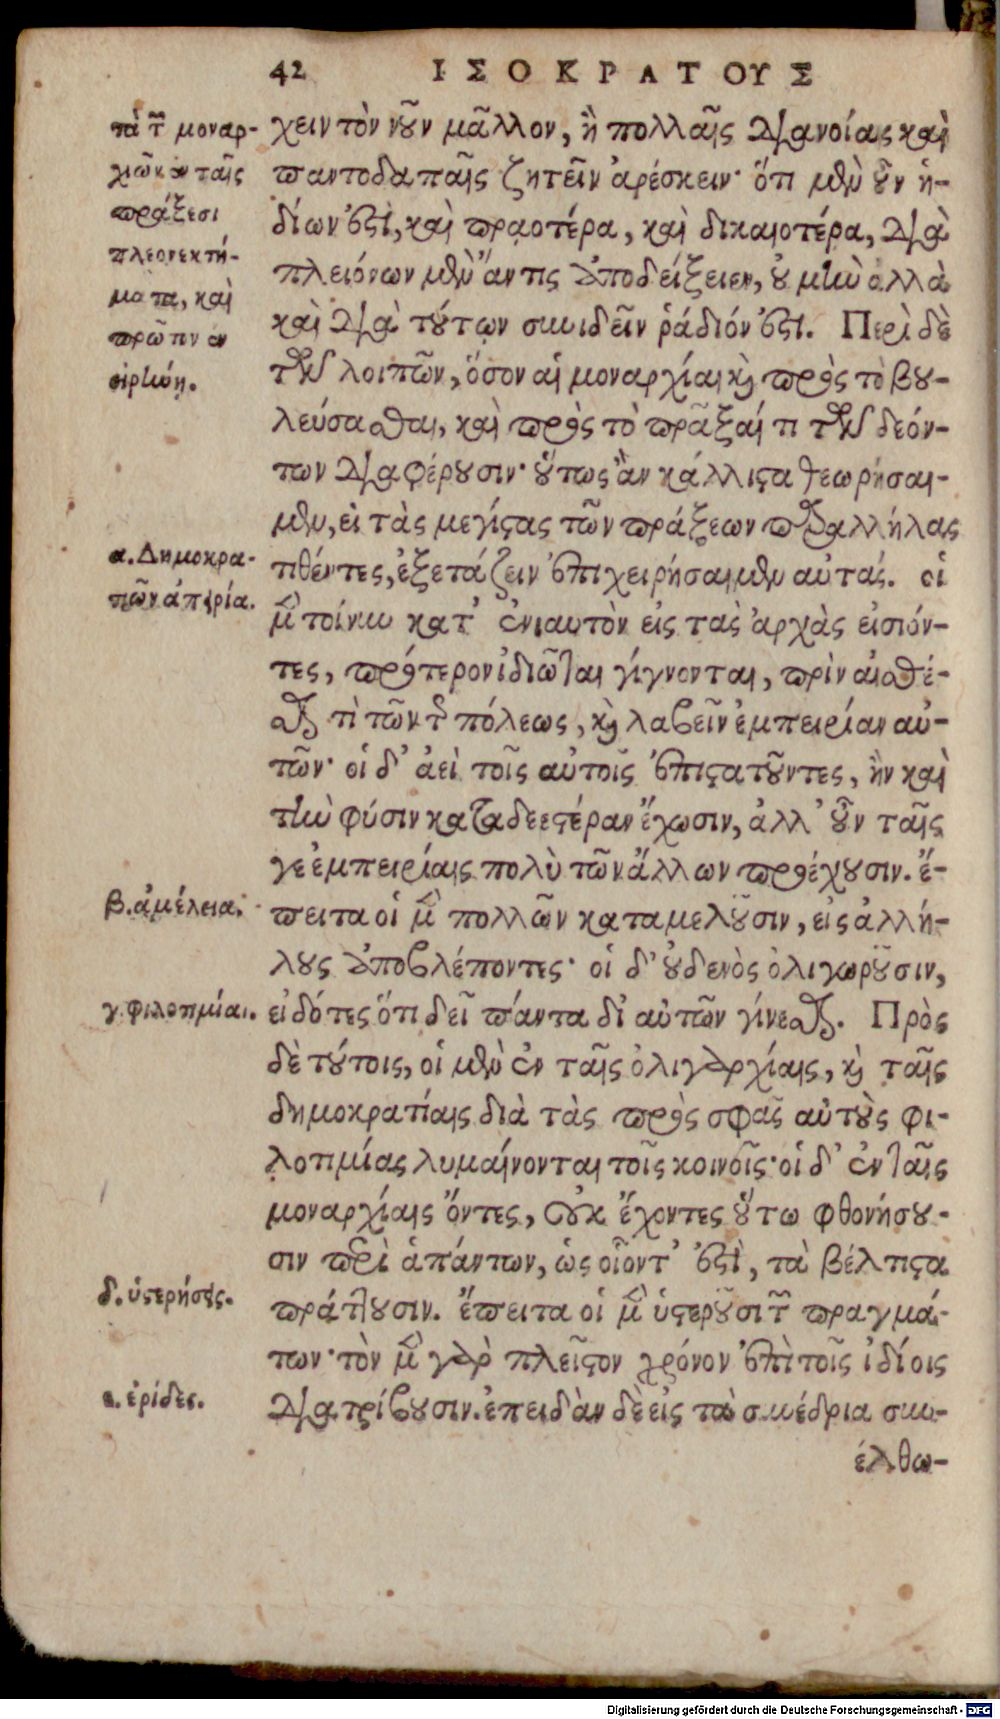 42 ΙΣΟΚΡΑΤΟΥΣ
τὰ τῆς μοναρ-
χιῶν ἐν ταῖς
πράξεσι
πλεονεκτή-
ματα, καὶ
πρῶτον ἐν
εἰρήνῃ.
χειν τὸν νοῦν μᾶλλον, ἢ πολλαῖς διανοίαις καὶ
παντοδαπαῖς ζητεῖν ἀρέσκειν· ὅτι μὲν οὖν ἡ-
δίων ἐστὶ, καὶ πραοτέρα, καὶ δικαιοτέρα, διὰ
πλειόνων μὲν ἄν τις ἀποδείξειεν, οὐ μὴν ἀλλὰ
καὶ διὰ τούτων συνιδεῖν ῥάδιόν ἐστι. Περὶ δὲ
τῶν λοιπῶν, ὅσον αἱ μοναρχίαι καὶ πρὸς τὸ βου-
λεύσασθαι, καὶ πρὸς τὸ πρᾶξαί τι τῶν δεόν-
των διαφέρουσιν· οὕτως ἂν κάλλιστα θεωρήσαι-
μεν, εἰ τὰς μεγίστας τῶν πράξεων παρ' ἀλλήλας
τιθέντες, ἐξετάζειν ἐπιχειρήσαιμεν αὐτάς. οἱ
α. Δημοκρα-
τιῶν ἀπειρία.
μὲν τοίνυν κατ' ἐνιαυτὸν εἰς τὰς ἀρχὰς εἰσιόν-
τες, πρότερον ἰδιῶται γίγνονται, πρὶν αἰσθέ-
σθαι τὶ τῶν τῆς πόλεως, καὶ λαβεῖν ἐμπειρίαν αὐ-
τῶν· οἱ δ' ἀεὶ τοῖς αὐτοῖς ἐπιστατοῦντες, ἢν καὶ
τὴν φύσιν καταδεεστέραν ἔχωσιν, ἀλλ' οὖν ταῖς
γε ἐμπειρίαις πολὺ τῶν ἄλλων προέχουσιν. ἔ-
β. ἀμέλεια.
πειτα οἱ μὲν πολλῶν καταμελοῦσιν, εἰς ἀλλή-
λους ἀποβλέποντες· οἱ δ' οὐδενὸς ὀλιγωροῦσιν,
γ. φιλοτιμίαι.
εἰδότες ὅτι δεῖ πάντα δι' αὐτῶν γίνεσθαι. Πρὸς
δὲ τούτοις, οἱ μὲν ἐν ταῖς ὀλιγαρχίαις, καὶ ταῖς
δημοκρατίαις διὰ τὰς πρὸς σφᾶς αὐτοὺς φι-
λοτιμίας λυμαίνονται τοῖς κοινοῖς· οἱ δ' ἐν ταῖς
μοναρχίαις ὄντες, οὐκ ἔχοντες οὕτω φθονήσου-
σιν περὶ ἁπάντων, ὡς οἷόντ' ἐστὶ, τὰ βέλτιστα
δ. ὑστερήσεις.
πράττουσιν. ἔπειτα οἱ μὲν ὑστεροῦσι τῶν πραγμά-
των· τὸν μὲν γὰρ πλεῖστον χρόνον ἐπὶ τοῖς ἰδίοις
ε. ἐρίδες.
διατρίβουσιν. ἐπειδὰν δὲ εἰς τὰ συνέδρια συν-
έλθω-
Digitalisierung gefördert durch die Deutsche Forschungsgemeinschaft - DFG